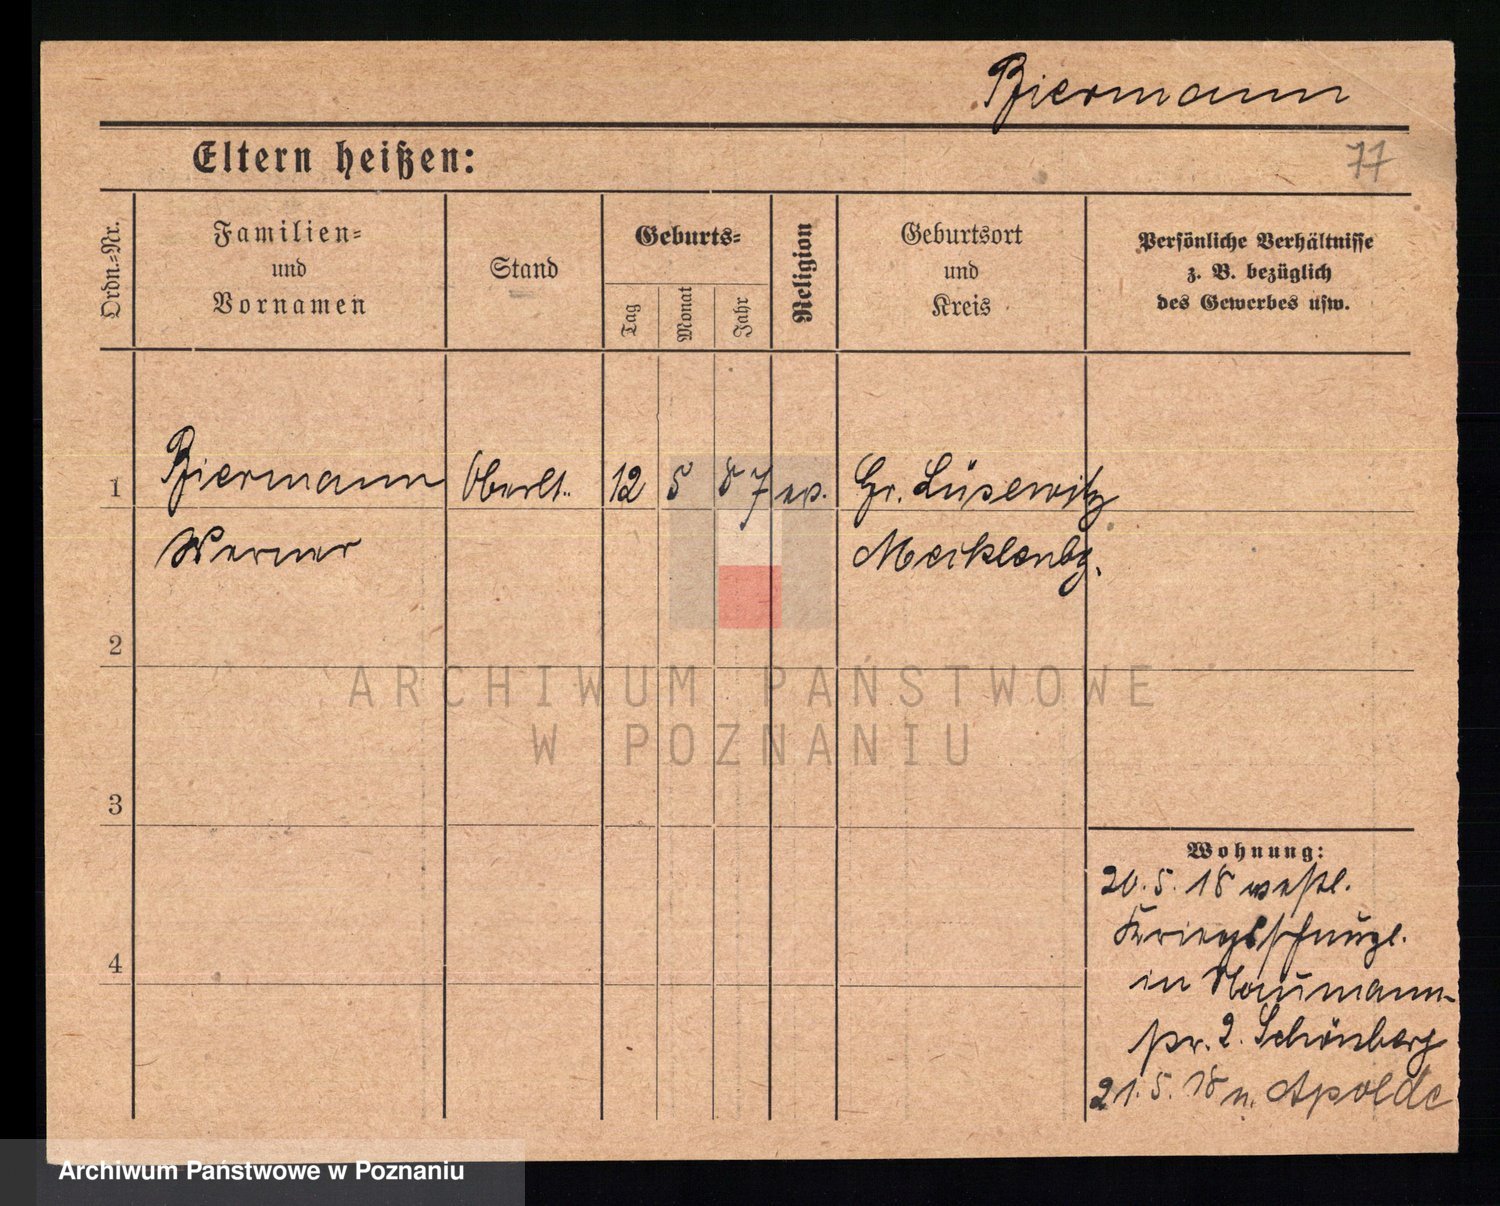 Biermann
Eltern heißen:
77
Ordn.-Nr.
Familien-
und
Vornamen
Stand
Geburts-
Tag
Monat
Jahr
Religion
Geburtsort
und
Kreis
Persönliche Verhältnisse
z. B. bezüglich
des Gewerbes usw.
1
Biermann
Oberlt.
12
5
87
ev.
Gr. Lüsewitz
Werner
Mecklenbg.
2
ARCHIWUM PAŃSTWOWE
W POZNANIU
3
Wohnung:
20.5.18
4
in Naumann-
str. 2. Schönberg
21.5.18 n. Apolda
Archiwum Państwowe w Poznaniu